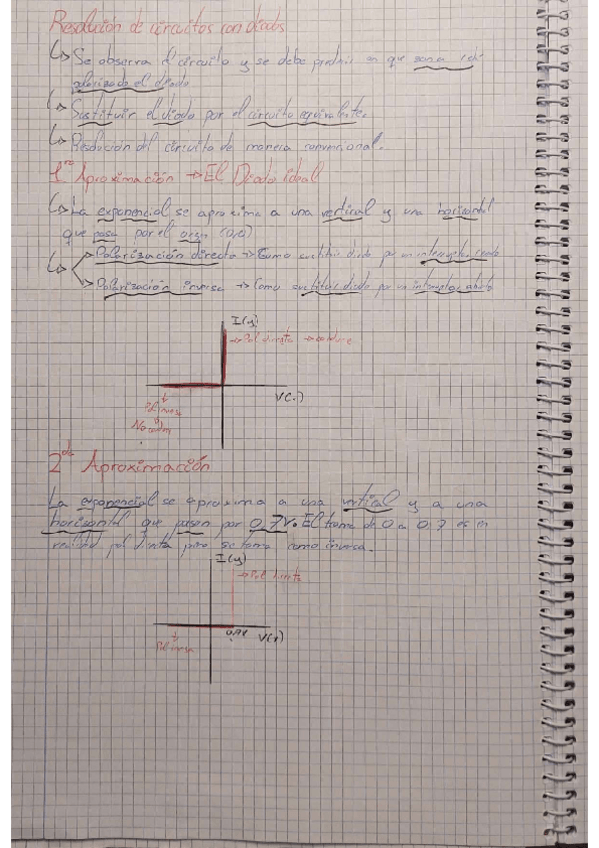 Resolución de circuitos con diodos
↳ Se observa el circuito y se debe predecir en que zona está
polarizado el diodo
↳ Sustituir el diodo por el circuito equivalente.
↳ Resolución del circuito de manera convencional.
1ra Aproximación → El Diodo ideal
↳ La exponencial se aproxima a una vertical y una horizontal
que pasa por el origen (0,0)
↳ Polarización directa → Como sustituir diodo por un interruptor cerrado
Polarización inversa → Como sustituir diodo por un interruptor abierto
I(y)
→ Pol directa → conduce
V(x)
Pol inversa
No conduce
2da Aproximación
La exponencial se aproxima a una vertical y a una
horizontal que pasan por 0,7V. El tramo de 0 a 0,7 es en
realidad pol directa pero se toma como inversa.
I(y)
→ Pol directa
0,7V
V(x)
Pol inversa